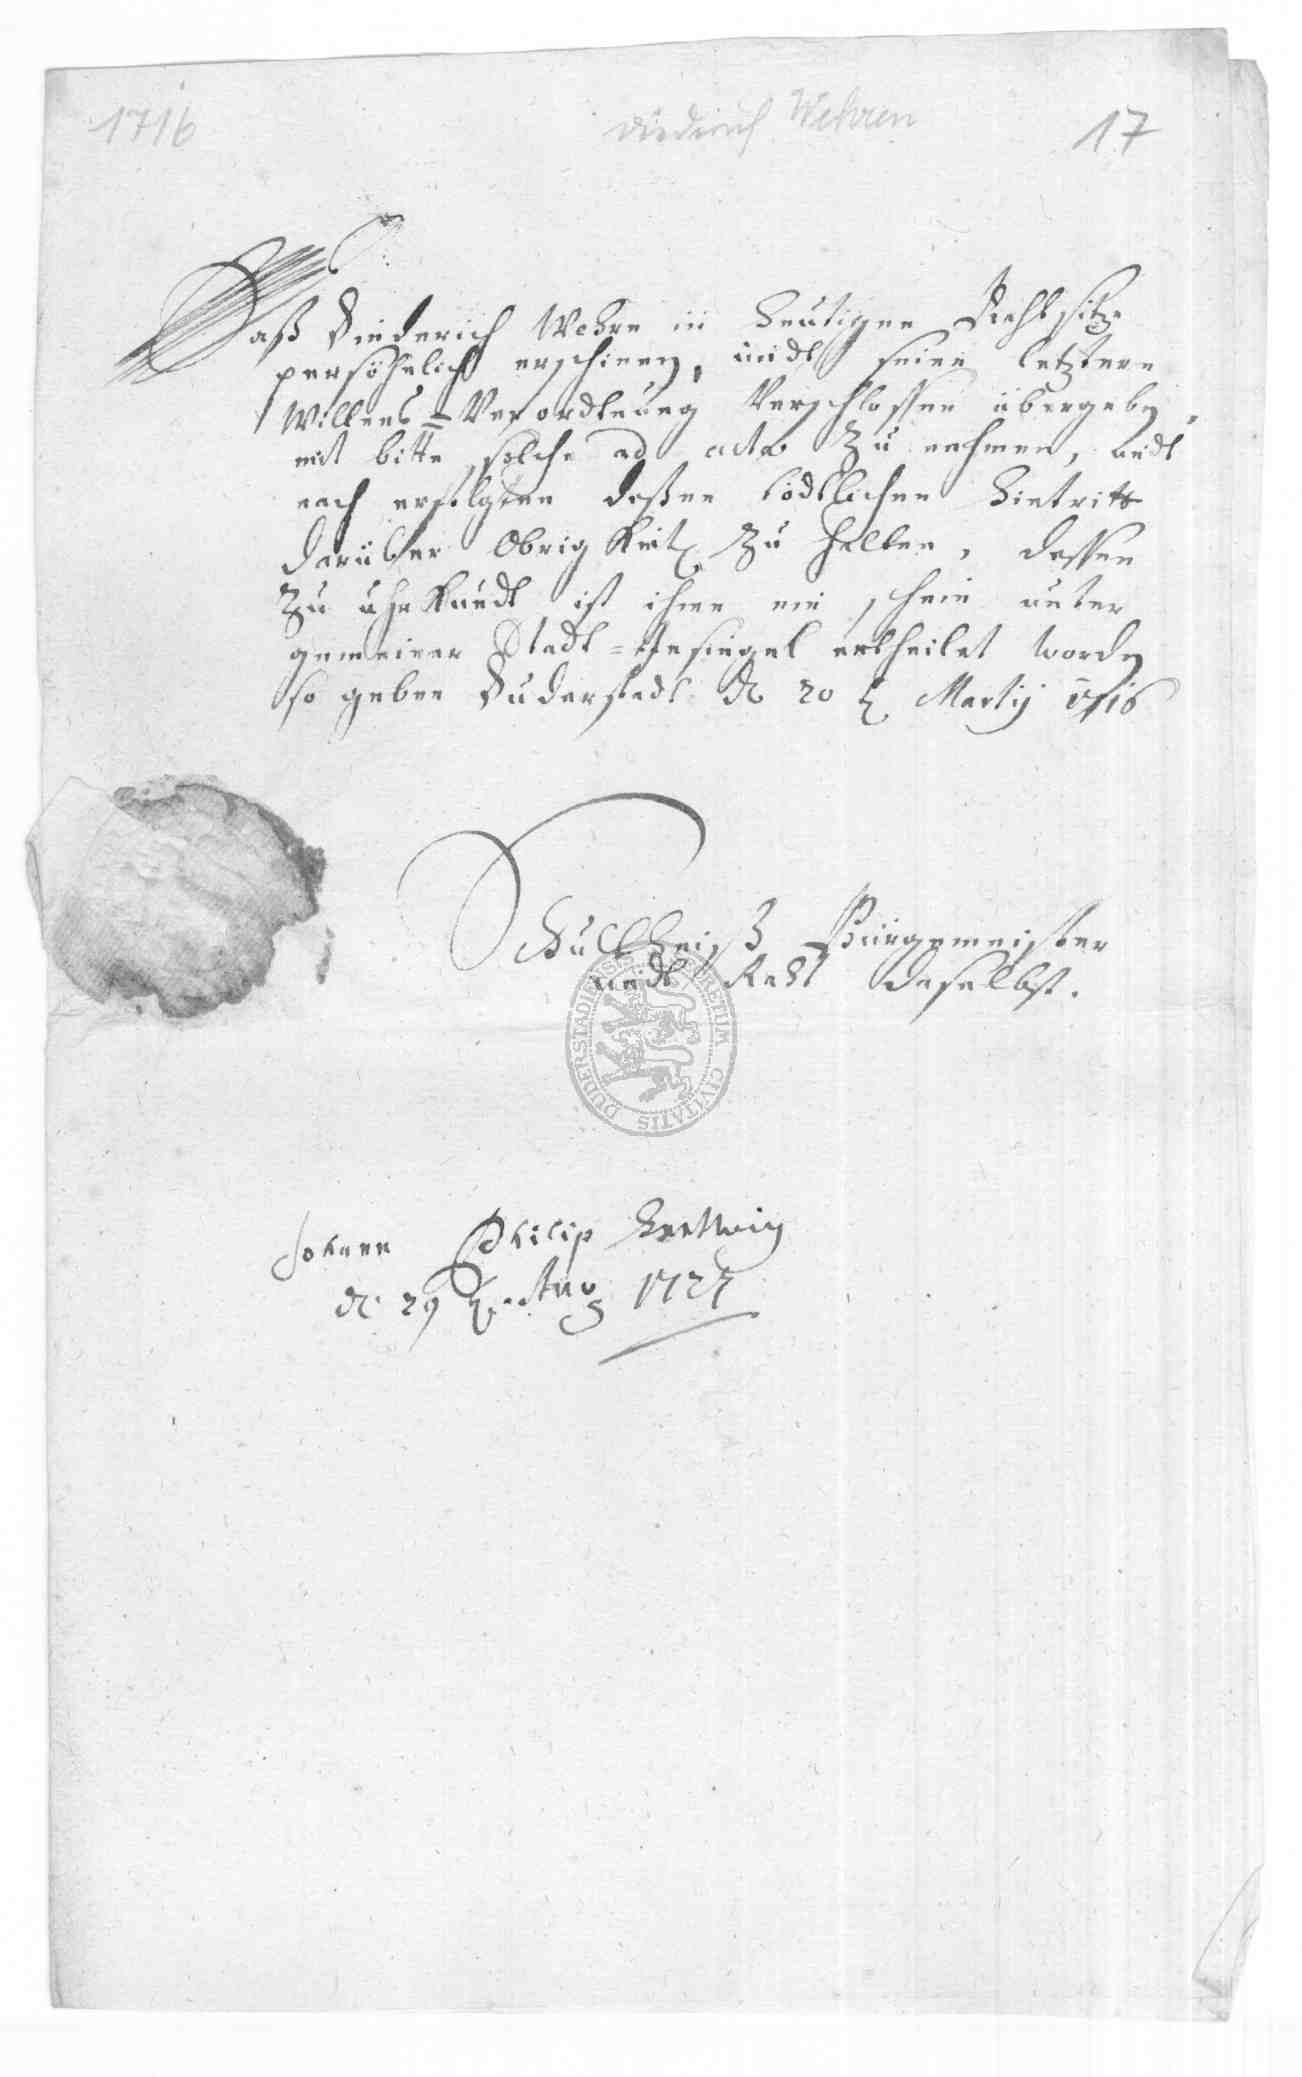 1716
Diederich Wehren
17
Daß Diederich Wehre in heutigen Rahtsitze
persöhnlich erschienen, undt seine letztere
Willens=Verordtnung Verschlossen übergeben,
mit bitte, solche ad acta Zu nehmen, undt
nach erfolgten deßen tödtlichen hintritt
darüber Obrigkeitl. Zu halten, dessen
Zu uhrkundt ist ihme ein schein unter
gemeiner Stadt=Insiegel ertheilet worden
so geben Duderstadt d 20 t. Martij 1716
Schultheiß Bürgemeister
undt Raht daselbst.
DUDERSTADIENSIS SECRETUM CIVITATIS
Johann Philip Hertwig
d 29 t. Aug 1727